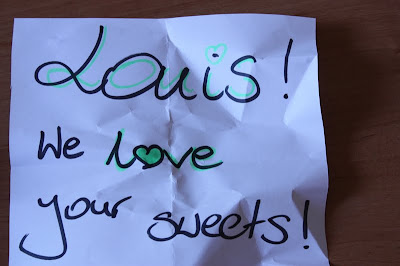 Louis!
We love
your sweets!